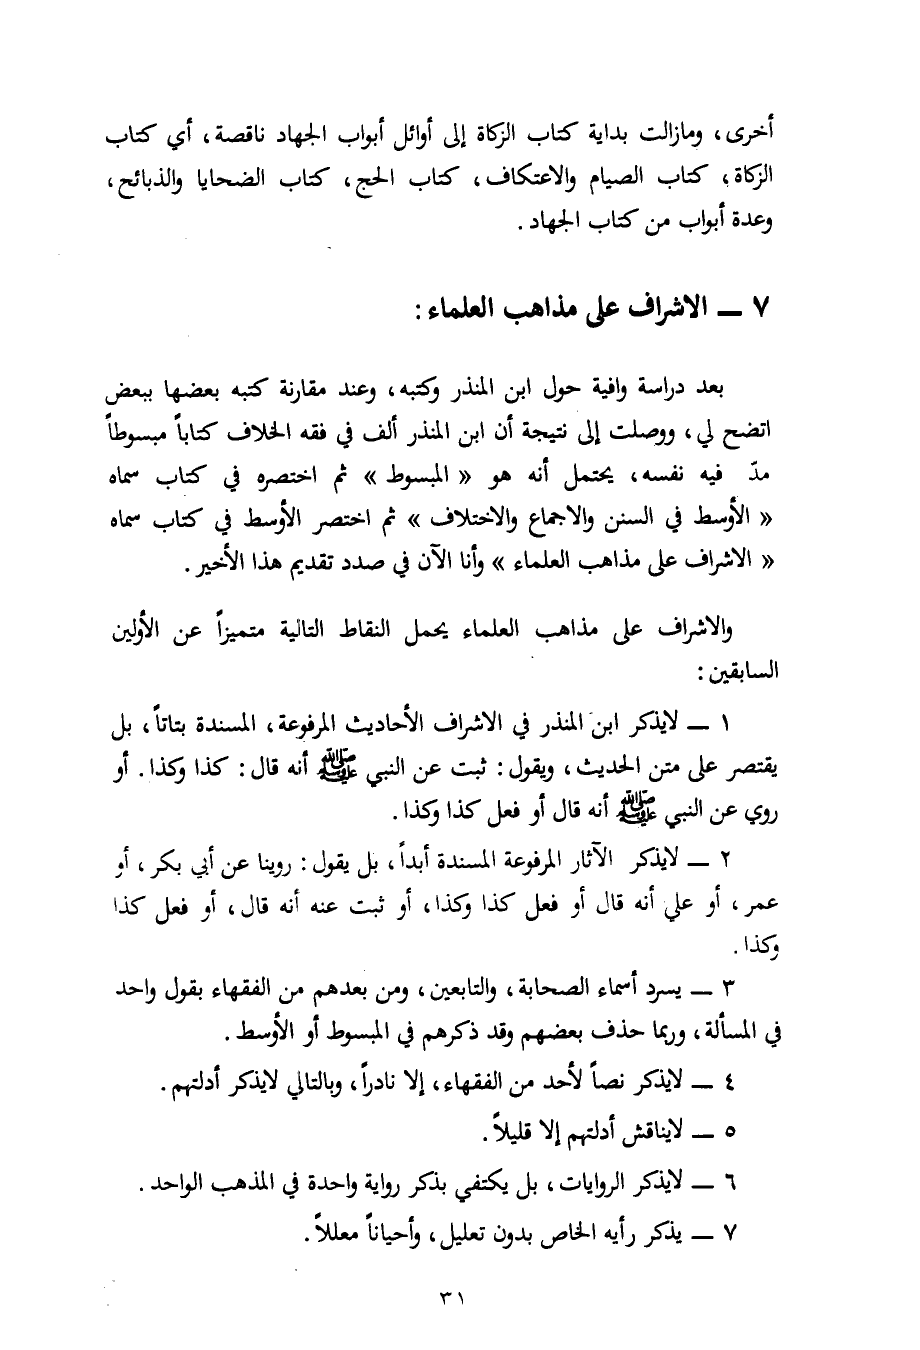 أخرى، ومازالت بداية كتاب الزكاة إلى أوائل أبواب الجهاد ناقصة، أي كتاب
الزكاة، كتاب الصيام والاعتكاف، كتاب الحج، كتاب الضحايا والذبائح،
وعدة أبواب من كتاب الجهاد .
٧ ــ الاشراف على مذاهب العلماء :
بعد دراسة وافية حول ابن المنذر وكتبه، وعند مقارنة كتبه بعضها ببعض
اتضح لي، ووصلت إلى نتيجة أن ابن المنذر ألف في فقه الخلاف كتاباً مبسوطاً
مدّ فيه نفسه، يحتمل أنه هو « المبسوط » ثم اختصره في كتاب سماه
« الأوسط في السنن والاجماع والاختلاف » ثم اختصر الأوسط في كتاب سماه
« الاشراف على مذاهب العلماء » وأنا الآن في صدد تقديم هذا الأخير .
والاشراف على مذاهب العلماء يحمل النقاط التالية متميزاً عن الأولين
السابقين :
١ ــ لايذكر ابن المنذر في الاشراف الأحاديث المرفوعة، المسندة بتاتاً، بل
يقتصر على متن الحديث، ويقول : ثبت عن النبي ﷺ أنه قال : كذا وكذا . أو
روي عن النبي ﷺ أنه قال أو فعل كذا وكذا .
٢ ــ لايذكر الآثار المرفوعة المسندة أبداً، بل يقول : روينا عن أبي بكر، أو
عمر، أو علي أنه قال أو فعل كذا وكذا، أو ثبت عنه أنه قال، أو فعل كذا
وكذا .
٣ ــ يسرد أسماء الصحابة، والتابعين، ومن بعدهم من الفقهاء بقول واحد
في المسألة، وربما حذف بعضهم وقد ذكرهم في المبسوط أو الأوسط .
٤ ــ لايذكر نصاً لأحد من الفقهاء، إلا نادراً، وبالتالي لايذكر أدلتهم .
٥ ــ لايناقش أدلتهم إلا قليلاً .
٦ ــ لايذكر الروايات، بل يكتفي بذكر رواية واحدة في المذهب الواحد .
٧ ــ يذكر رأيه الخاص بدون تعليل، وأحياناً معللاً .
٣١